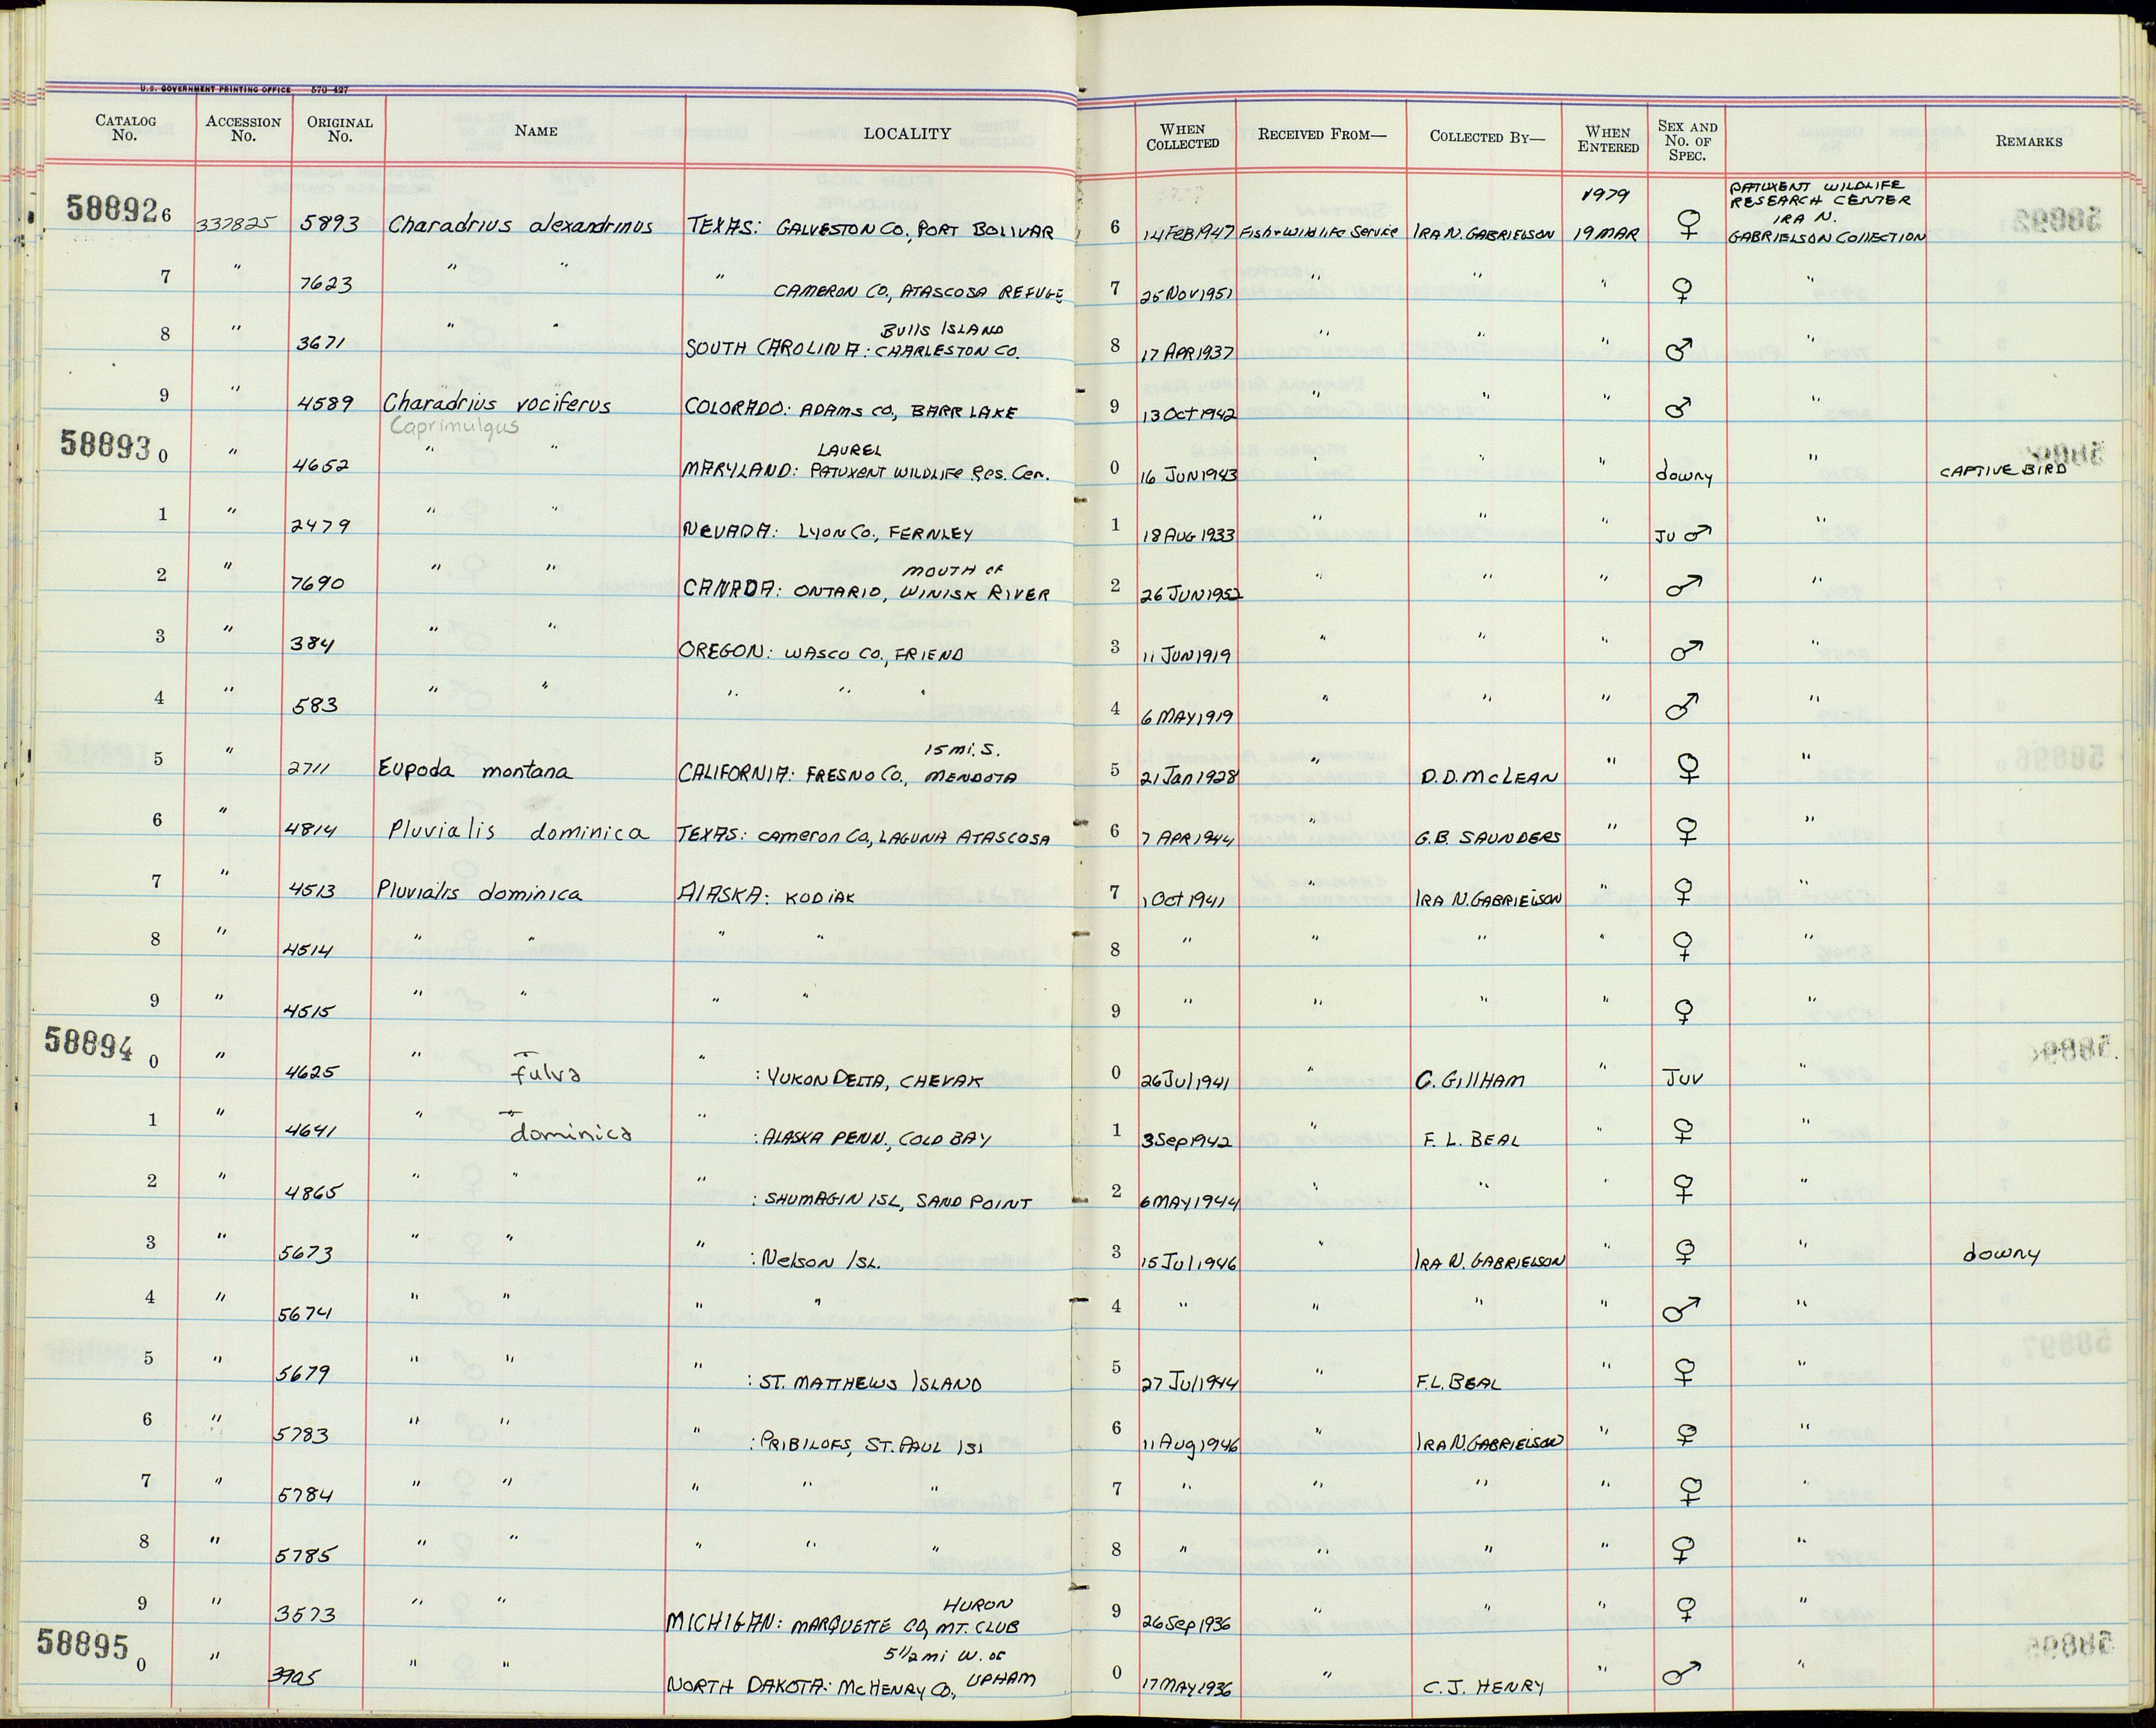 U.S. GOVERNMENT PRINTING OFFICE 570-427
CATALOG No. ACCESSION No. ORIGINAL No. NAME LOCALITY WHEN COLLECTED RECEIVED FROM— COLLECTED BY— WHEN ENTERED SEX AND No. OF SPEC. REMARKS
588926 337825 5893 Charadrius alexandrinus TEXAS: GALVESTON CO., PORT BOLIVAR 6 14 FEB 1947 Fish + Wildlife Service IRA N. GABRIELSON 1979 19 MAR ♀ PATUXENT WILDLIFE RESEARCH CENTER IRA N. GABRIELSON COLLECTION
7 " 7623 " " " CAMERON CO., ATASCOSA REFUGE 7 25 NOV 1951 " " " ♀ "
8 " 3671 " " SOUTH CAROLINA: CHARLESTON CO. BULLS ISLAND 8 17 APR 1937 " " " ♂ "
9 " 4589 Charadrius vociferus COLORADO: ADAMS CO, BARR LAKE 9 13 Oct 1942 " " " ♂ "
Caprimulgus
588930 " 4652 " " MARYLAND: LAUREL PATUXENT WILDLIFE Res. Cen. 0 16 JUN 1943 " " " downy " CAPTIVE BIRD
1 " 2479 " " NEVADA: LYON CO., FERNLEY 1 18 AUG 1933 " " " JU ♂ "
2 " 7690 " " CANADA: ONTARIO, MOUTH OF WINISK RIVER 2 26 JUN 1952 " " " ♂ "
3 " 384 " " OREGON: WASCO CO., FRIEND 3 11 JUN 1919 " " " ♂ "
4 " 583 " " " " " 4 6 MAY 1919 " " " ♂ "
5 " 2711 Eupoda montana CALIFORNIA: FRESNO CO., 15 mi. S. MENDOTA 5 21 Jan 1928 " D.D. McLEAN " ♀ "
6 " 4814 Pluvialis dominica TEXAS: Cameron Co, LAGUNA ATASCOSA 6 7 APR 1944 " G.B. SAUNDERS " ♀ "
7 " 4513 Pluvialis dominica ALASKA: KODIAK 7 1 Oct 1941 " IRA N. GABRIELSON " ♀ "
8 " 4514 " " " " 8 " " " " ♀ "
9 " 4515 " " " " 9 " " " " ♀ "
588940 " 4625 " fulva " : YUKON DELTA, CHEVAK 0 26 Jul 1941 " C. GILLHAM " Juv "
1 " 4641 " dominica " : ALASKA PENN., COLD BAY 1 3 Sep 1942 " F. L. BEAL " ♀ "
2 " 4865 " " " : SHUMAGIN ISL, SAND POINT 2 6 MAY 1944 " " " ♀ "
3 " 5673 " " " : Nelson ISL. 3 15 Jul 1946 " IRA N. GABRIELSON " ♀ " downy
4 " 5674 " " " " 4 " " " " ♂ "
5 " 5679 " " " : ST. MATTHEWS ISLAND 5 27 Jul 1944 " F.L. BEAL " ♀ "
6 " 5783 " " " : PRIBILOFS, ST. PAUL ISl 6 11 Aug 1946 " IRA N. GABRIELSON " ♀ "
7 " 5784 " " " " " 7 " " " " ♀ "
8 " 5785 " " " " " 8 " " " " ♀ "
9 " 3573 " " MICHIGAN: MARQUETTE CO, HURON MT. CLUB 9 26 Sep 1936 " " " ♀ "
588950 " 3905 " " NORTH DAKOTA: McHENRY CO., 5 1/2 mi W. OF UPHAM 0 17 MAY 1936 " C. J. HENRY " ♂ "